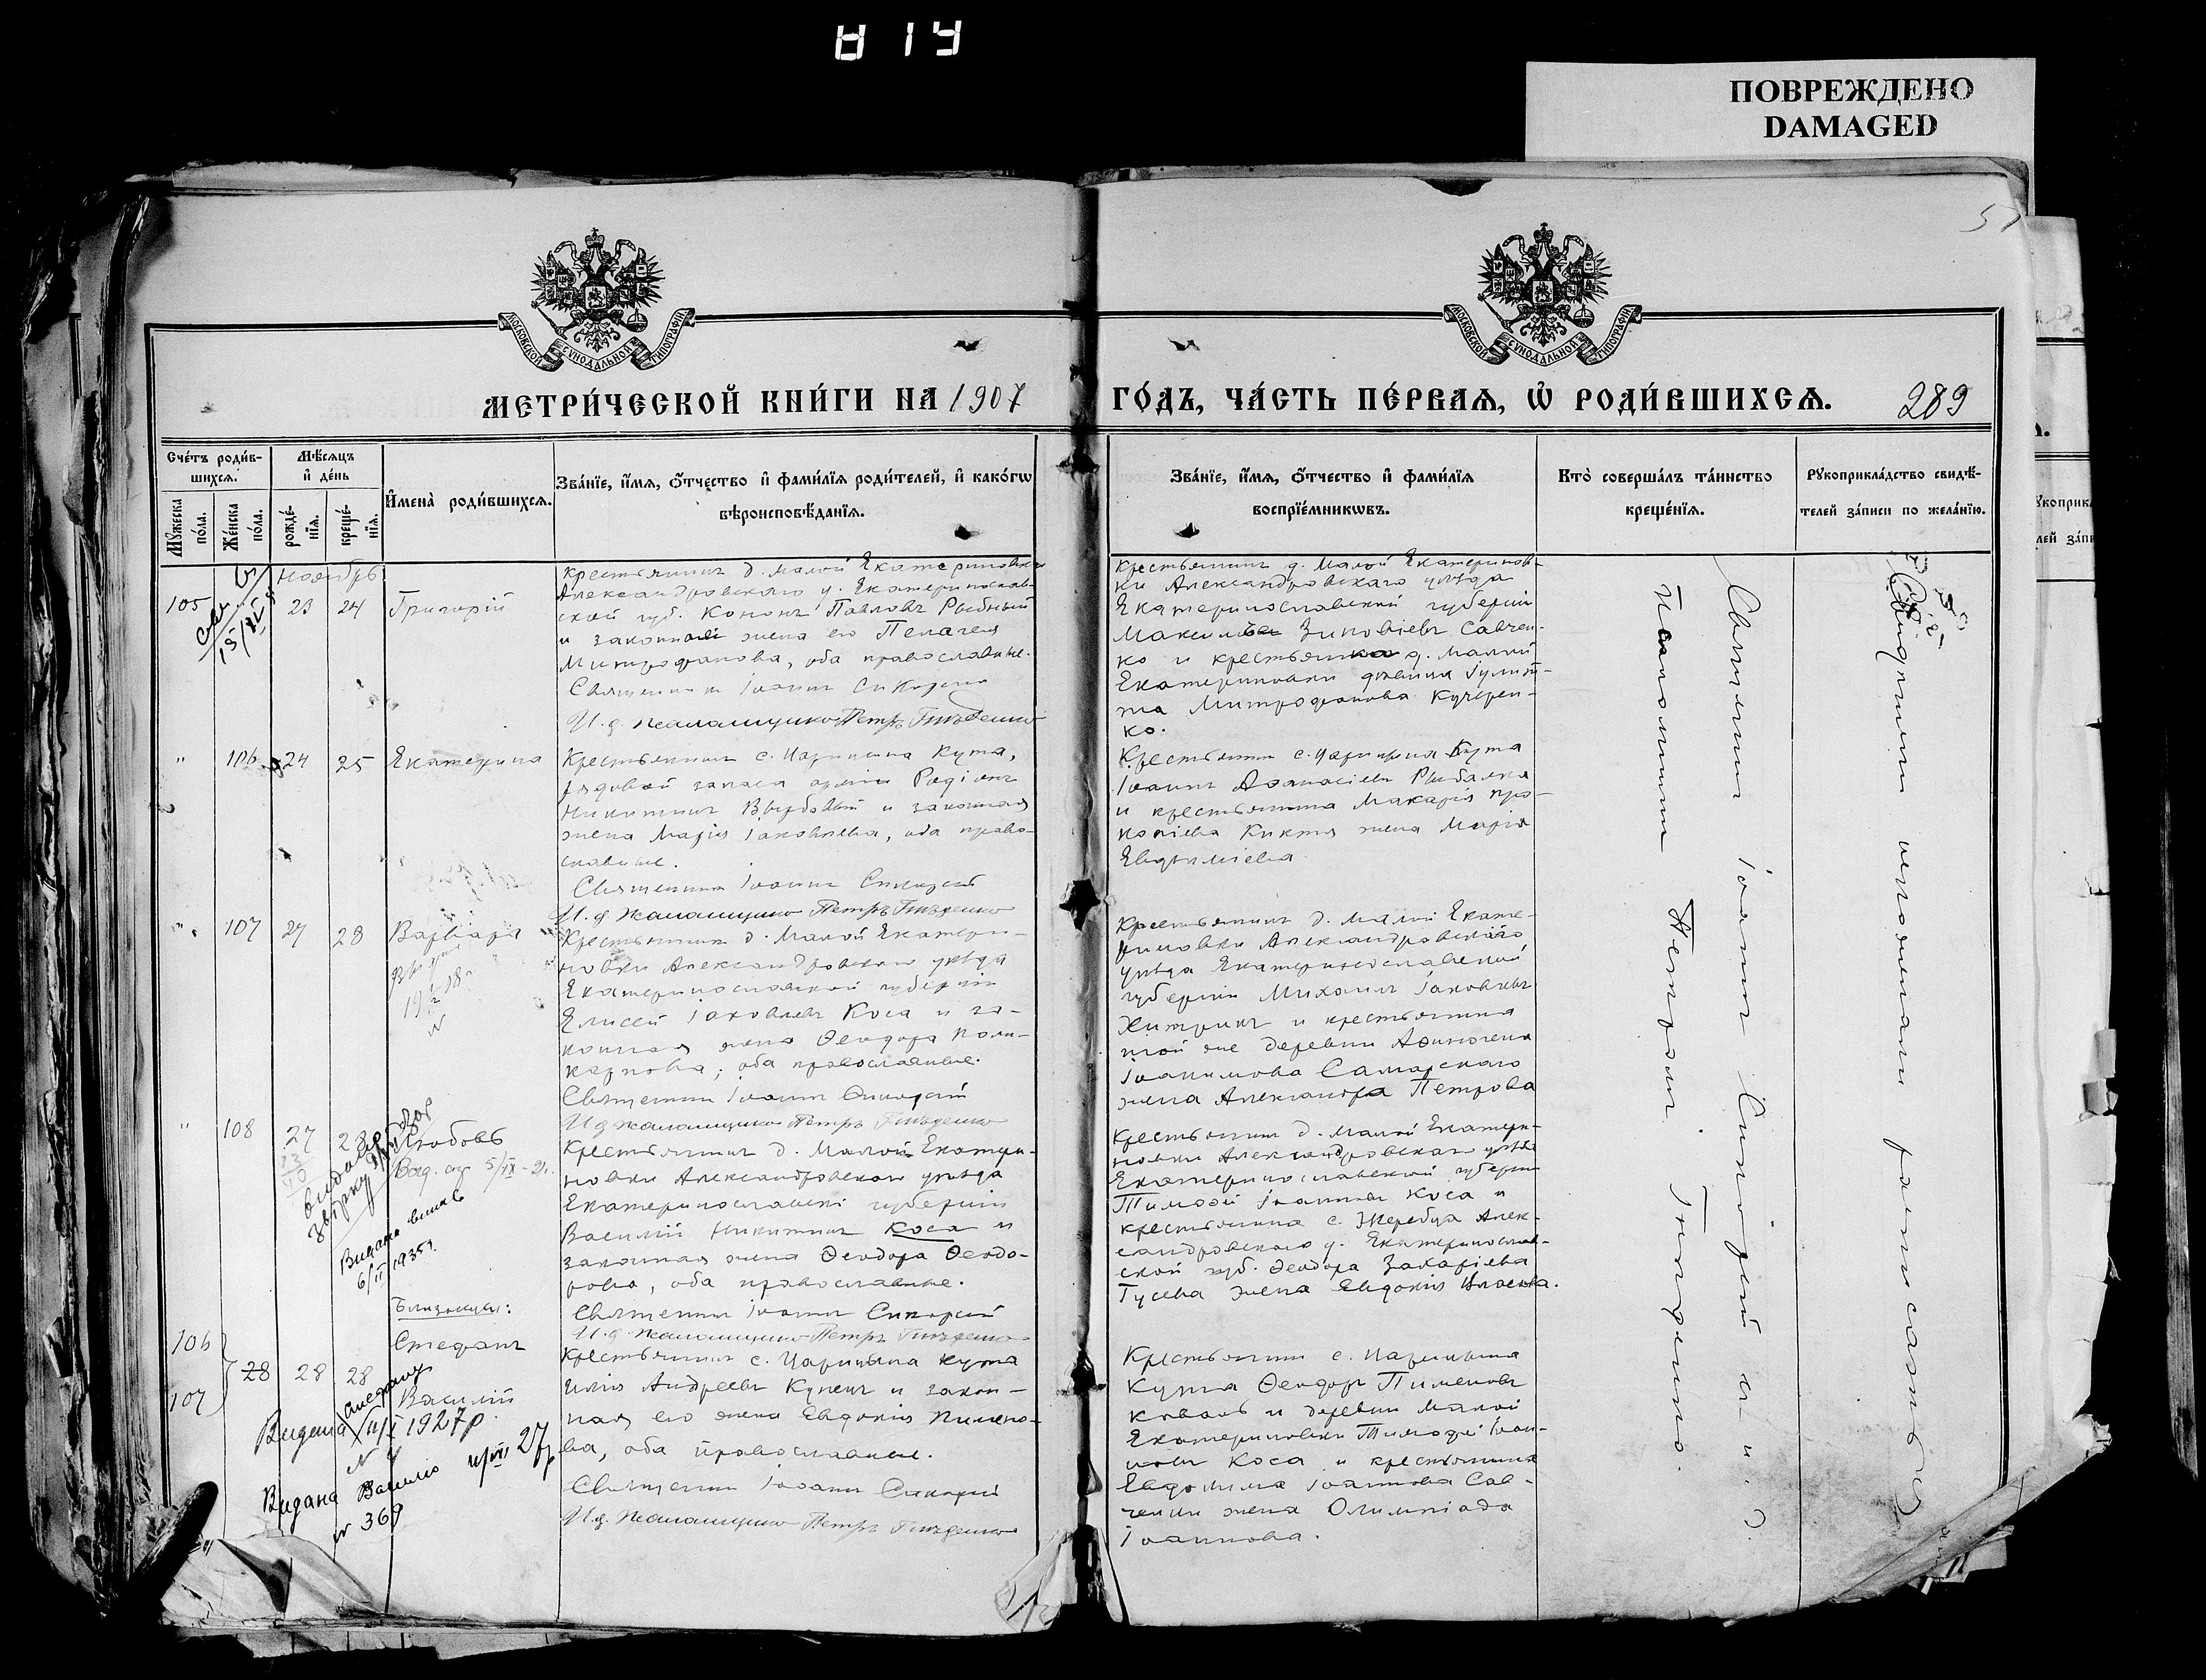 819
ПОВРЕЖДЕНО
DAMAGED
МОСКОВСКОЙ СѴНОДАЛЬНОЙ ТИПОГРАФІИ
МОСКОВСКОЙ СѴНОДАЛЬНОЙ ТИПОГРАФІИ
МЕТРИ́ЧЕСКОЙ КНИ́ГИ НА 1907
ГО́ДЪ, ЧА́СТЬ ПЕ́РВАѦ, Ѡ҆ РОДИ́ВШИХСѦ.
289
Сче́тъ роди́в-
шихсѧ.
Мꙋ́жеска по́ла.
Же́нска по́ла.
Мѣ́сѧцъ
и҆ де́нь
рожде́-
нїѧ.
креще́-
нїѧ.
И҆мена̀ роди́вшихсѧ.
Зва́нїе, и҆́мѧ, ѻ҆́тчество и҆ фами́лїѧ роди́телей, и҆ како́гѡ
вѣроисповѣ́данїѧ.
Зва́нїе, и҆́мѧ, ѻ҆́тчество и҆ фами́лїѧ
воспрїе́мникѡвъ.
Кто̀ соверша́лъ та́инство
креще́нїѧ.
Рꙋкоприкла́дство свидѣ́-
телей за́писи по жела́нїю.
Ноябрь
105
15/XI
23 24 Григорій
крестьянинъ д. Малой Екатериновки
Александровскаго у. Екатеринослав-
ской губ. Кононъ Павловъ Рыбный
и законная жена его Пелагея
Митрофанова, оба православные.
Священникъ Іоаннъ Сикорскій
И. д. псаломщика Петръ Гнѣденко
крестьянинъ д. Малой Екатеринов-
ки Александровскаго уѣзда
Екатеринославской губерніи
Максимъ Зиновіевъ Савчен-
ко и крестьянка д. Малой
Екатериновки дѣвица Іулит-
та Митрофанова Кучерен-
ко.
" 106 24 25 Екатерина
Крестьянинъ с. Царицына Кута,
рядовой запаса арміи Родіонъ
Никитинъ Вырбовый и законная
жена Марія Іаковлева, оба право-
славные.
Священникъ Іоаннъ Сикорскій
И. д. псаломщика Петръ Гнѣденко
Крестьянинъ с. Царицына Кута
Іоаннъ Аѳанасіевъ Рыбалка
и крестьянина Макарія Про-
копіева Киктя жена Марія
Евдокиміева
" 107 27 28 Варвара
Крестьянинъ д. Малой Екатери-
новки Александровскаго уѣзда
Екатеринославской губерніи
Елисей Іаковлевъ Коса и за-
конная жена Ѳеодора Поли-
карпова, оба православные.
Священникъ Іоаннъ Сикорскій
И. д. псаломщика Петръ Гнѣденко
Крестьянинъ д. Малой Екате-
риновки Александровскаго
уѣзда Екатеринославской
губерніи Михаилъ Іаковлевъ
Хитрикъ и крестьянина
той же деревни Аѳиногена
Іоакимова Самарскаго
жена Александра Петрова
" 108 27 28 Любовь
5/IX - 21.
Видана випись
6/II 1935 г.
Крестьянинъ д. Малой Екатери-
новки Александровскаго уѣзда
Екатеринославской губерніи
Василій Никитинъ Коса и
законная жена Ѳеодора Ѳеодо-
рова, оба православные.
Священникъ Іоаннъ Сикорскій
И. д. псаломщика Петръ Гнѣденко
Крестьянинъ д. Малой Екатери-
новки Александровскаго уѣзда
Екатеринославской губерніи
Тимоѳей Іоанновъ Коса и
крестьянина с. Жеребца Алек-
сандровскаго у. Екатеринослав-
ской губ. Ѳеодора Захаріева
Гусева жена Евдокія Власьева.
Близнецы:
106
107
28 28 28
Стефанъ
Василій
Видана 11/I 1927 р.
Видана Василю 4/VII 27 р.
№ 369
Крестьянинъ с. Царицына Кута
Илія Андреевъ Купецъ и закон-
ная его жена Евдокія Пимено-
ва, оба православные.
Священникъ Іоаннъ Сикорскій
И. д. псаломщика Петръ Гнѣденко
Крестьянинъ с. Царицына
Кута Ѳеодоръ Пименовъ
Коваль и деревни Малой
Екатериновки Тимоѳей Іоан-
новъ Коса и крестьянина
Евдокима Іоаннова Сав-
ченки жена Олимпіада
Іоаннова.
Священникъ Іоаннъ Сикорскій и и. д.
псаломщика Петръ Гнѣденко.